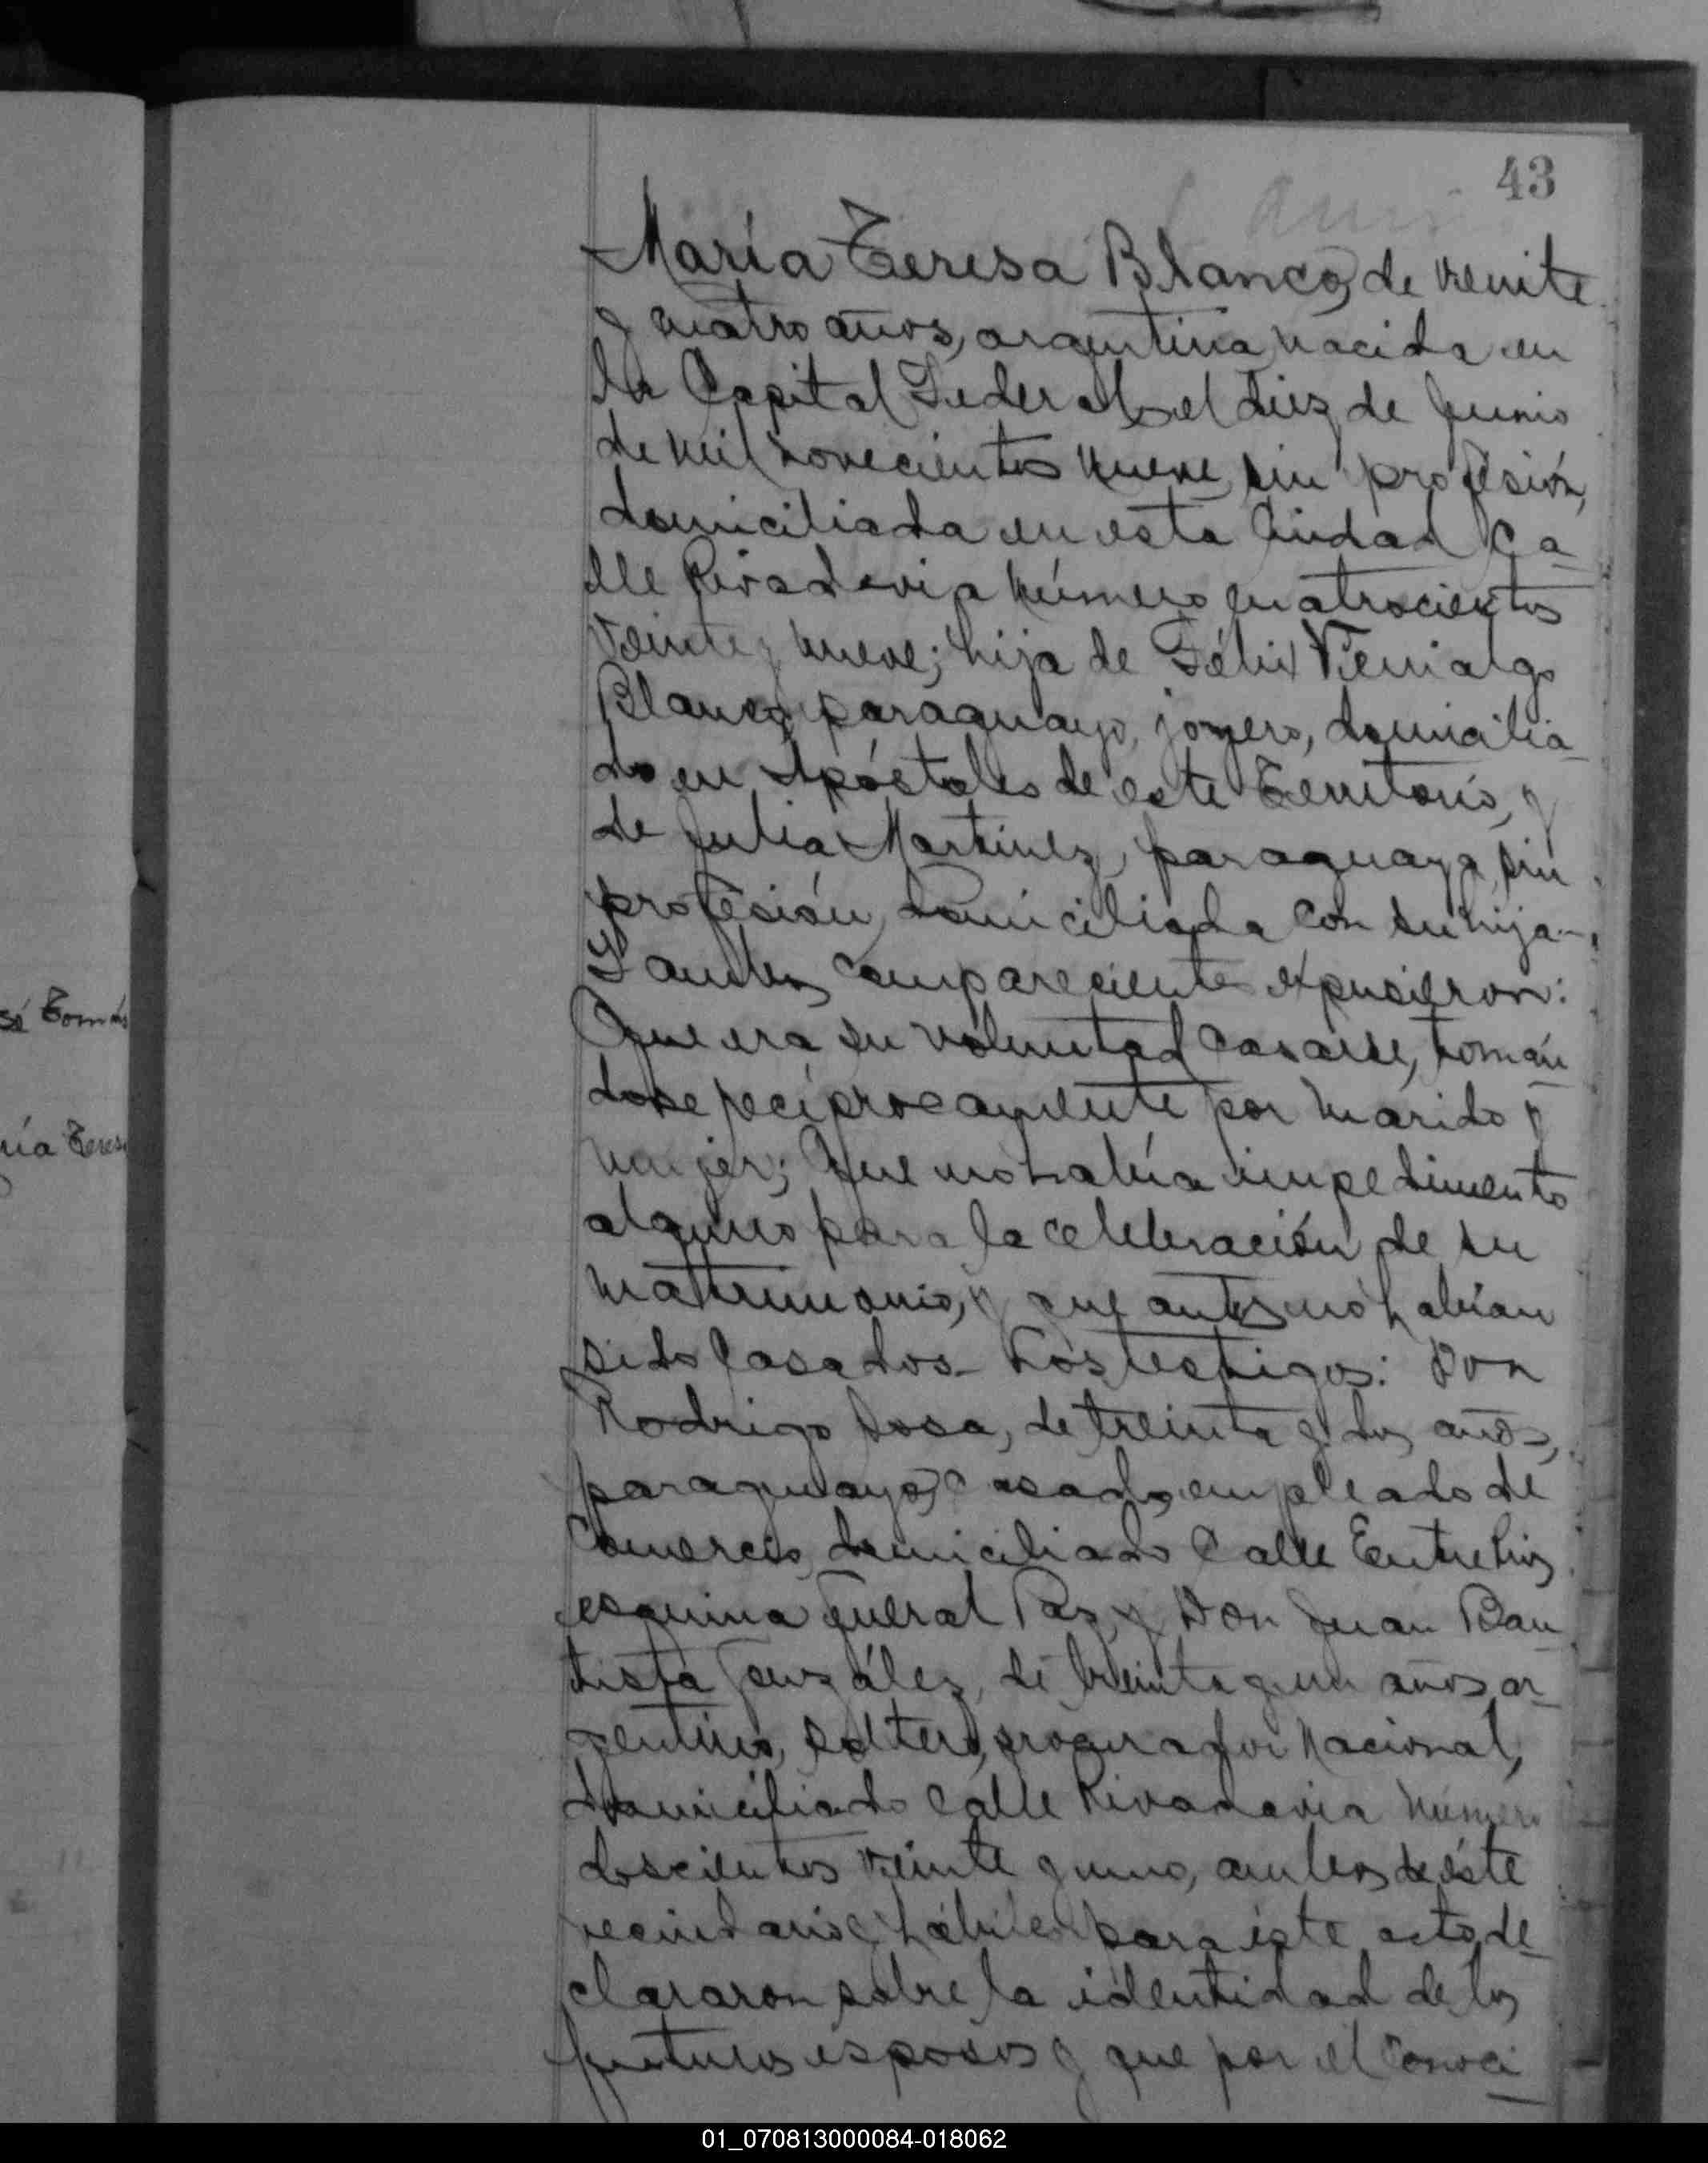 43
María Teresa Blanco, de veinte
y cuatro años, argentina, nacida en
la Capital Federal, el diez de Junio
de mil novecientos nueve, sin profesión,
domiciliada en esta Ciudad Ca-
lle Rivadavia número cuatrocientos
veinte y nueve; hija de Félix
Blanco, paraguayo, joyero, domicilia-
do en Apóstoles de este Territorio, y
de Julia Martinez, paraguaya, sin
profesión, domiciliada con su hija.-
Y ambos comparecientes expusieron:
Que era su voluntad casarse, toman-
dose reciprocamente por marido y
mujer; Que no había impedimento
alguno para la celebración de su
matrimonio, y que antes no habían
sido casados- Los testigos: Don
Rodrigo Sosa, de treinta y dos años,
paraguayo, casado, empleado de
Comercio, domiciliado Calle Entre Rios
esquina General Paz, y Don Juan Bau-
tista González, de treinta y un años, ar-
gentino, soltero, procurador Nacional,
domiciliado calle Rivadavia número
doscientos veinte y uno, ambos de éste
vecindario y hábiles para éste acto, de-
clararon sobre la identidad de los
futuros esposos y que por el conoci-
sé Tomás
ría Teres
01_070813000084-018062